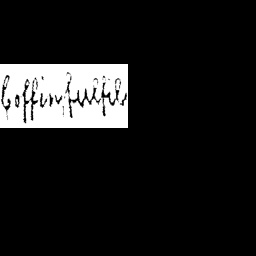 Coffin, fulfil